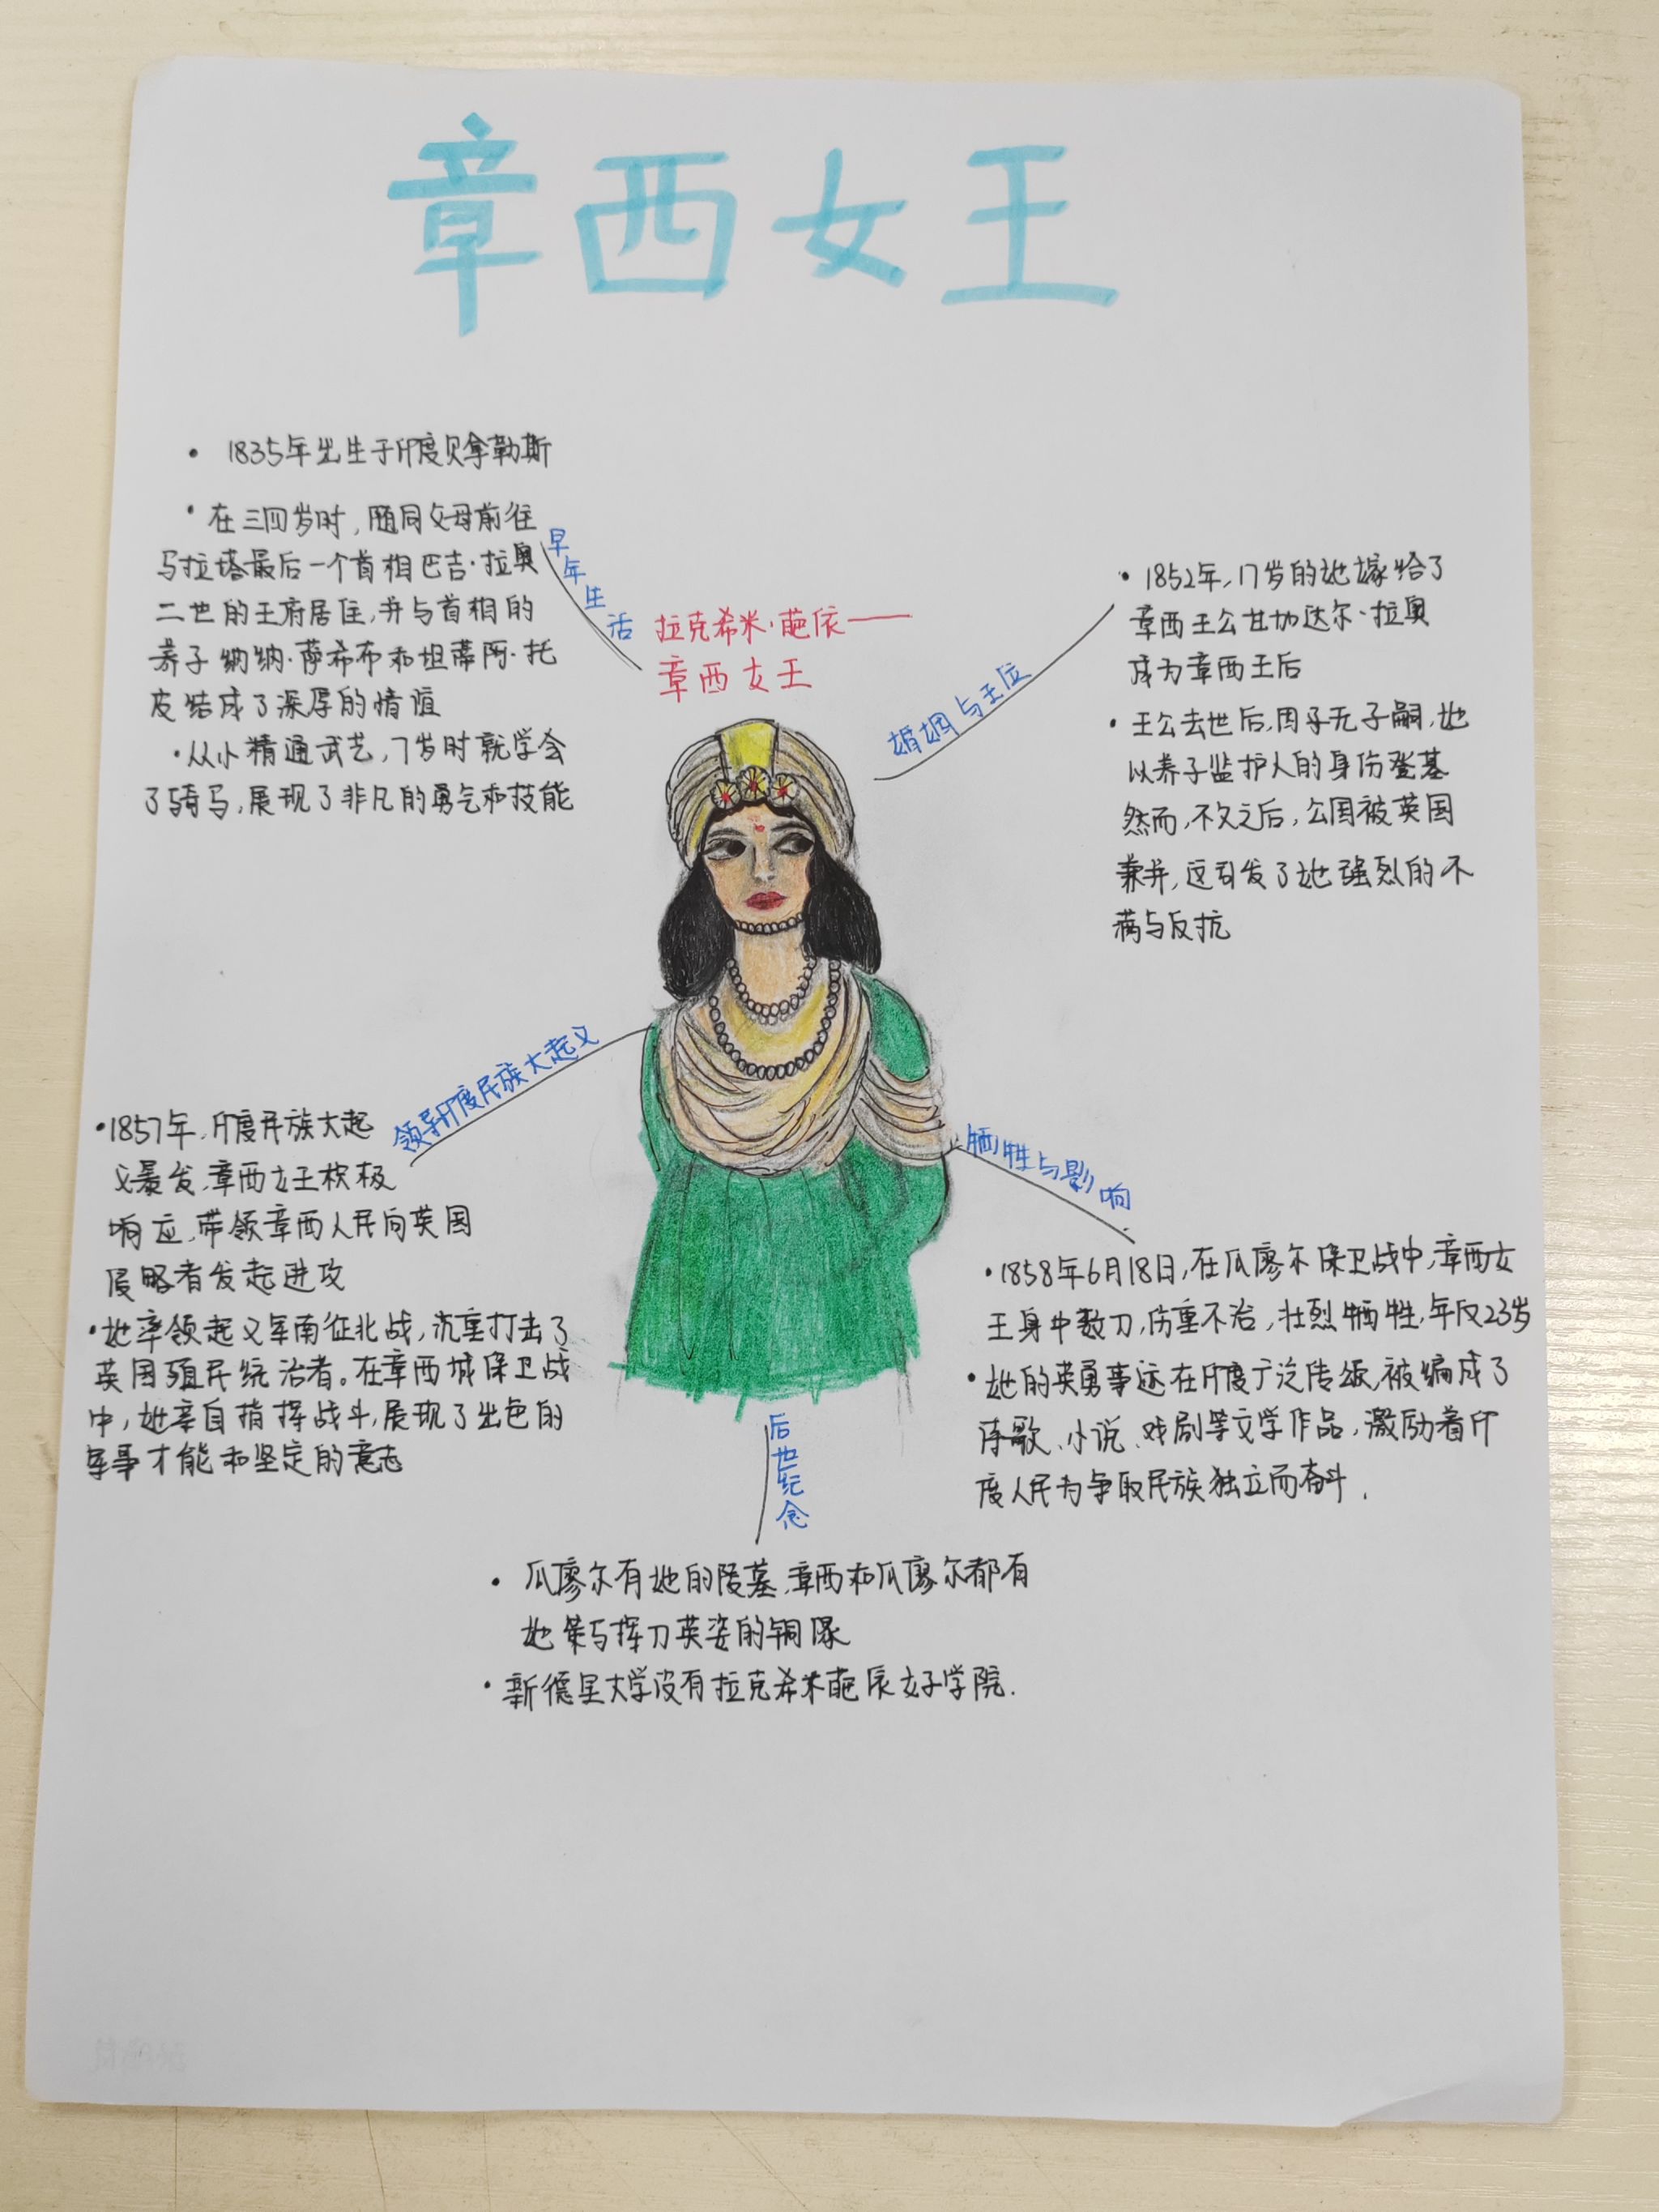 章西女王
• 1835年出生于印度贝拿勒斯
• 在三四岁时,随同父母前往
马拉塔最后一个首相巴吉·拉奥
二世的王府居住,并与首相的
养子纳纳·萨希布和坦蒂阿·托
皮结成了深厚的情谊
• 从小精通武艺,7岁时就学会
了骑马,展现了非凡的勇气和技能
早年生活
拉克希米·葩依——
章西女王
婚姻与王位
• 1852年,17岁的她嫁给了
章西王公甘加达尔·拉奥
成为章西王后
• 王公去世后,因为无子嗣,她
以养子监护人的身份登基
然而,不久之后,公国被英国
兼并,这引发了她强烈的不
满与反抗
领导印度民族大起义
• 1857年,印度民族大起
义暴发,章西女王积极
响应,带领章西人民向英国
侵略者发起进攻
• 她率领起义军南征北战,沉重打击了
英国殖民统治者。在章西城保卫战
中,她亲自指挥战斗,展现了出色的
军事才能和坚定的意志
牺牲与影响
• 1858年6月18日,在瓜廖尔保卫战中,章西女
王身中数刀,伤重不治,壮烈牺牲,年仅23岁
• 她的英勇事迹在印度广泛传颂,被编成了
诗歌、小说、戏剧等文学作品,激励着印
度人民为争取民族独立而奋斗.
后世纪念
• 瓜廖尔有她的陵墓,章西和瓜廖尔都有
她策马挥刀英姿的铜像
• 新德里大学设有拉克希米葩依女子学院.